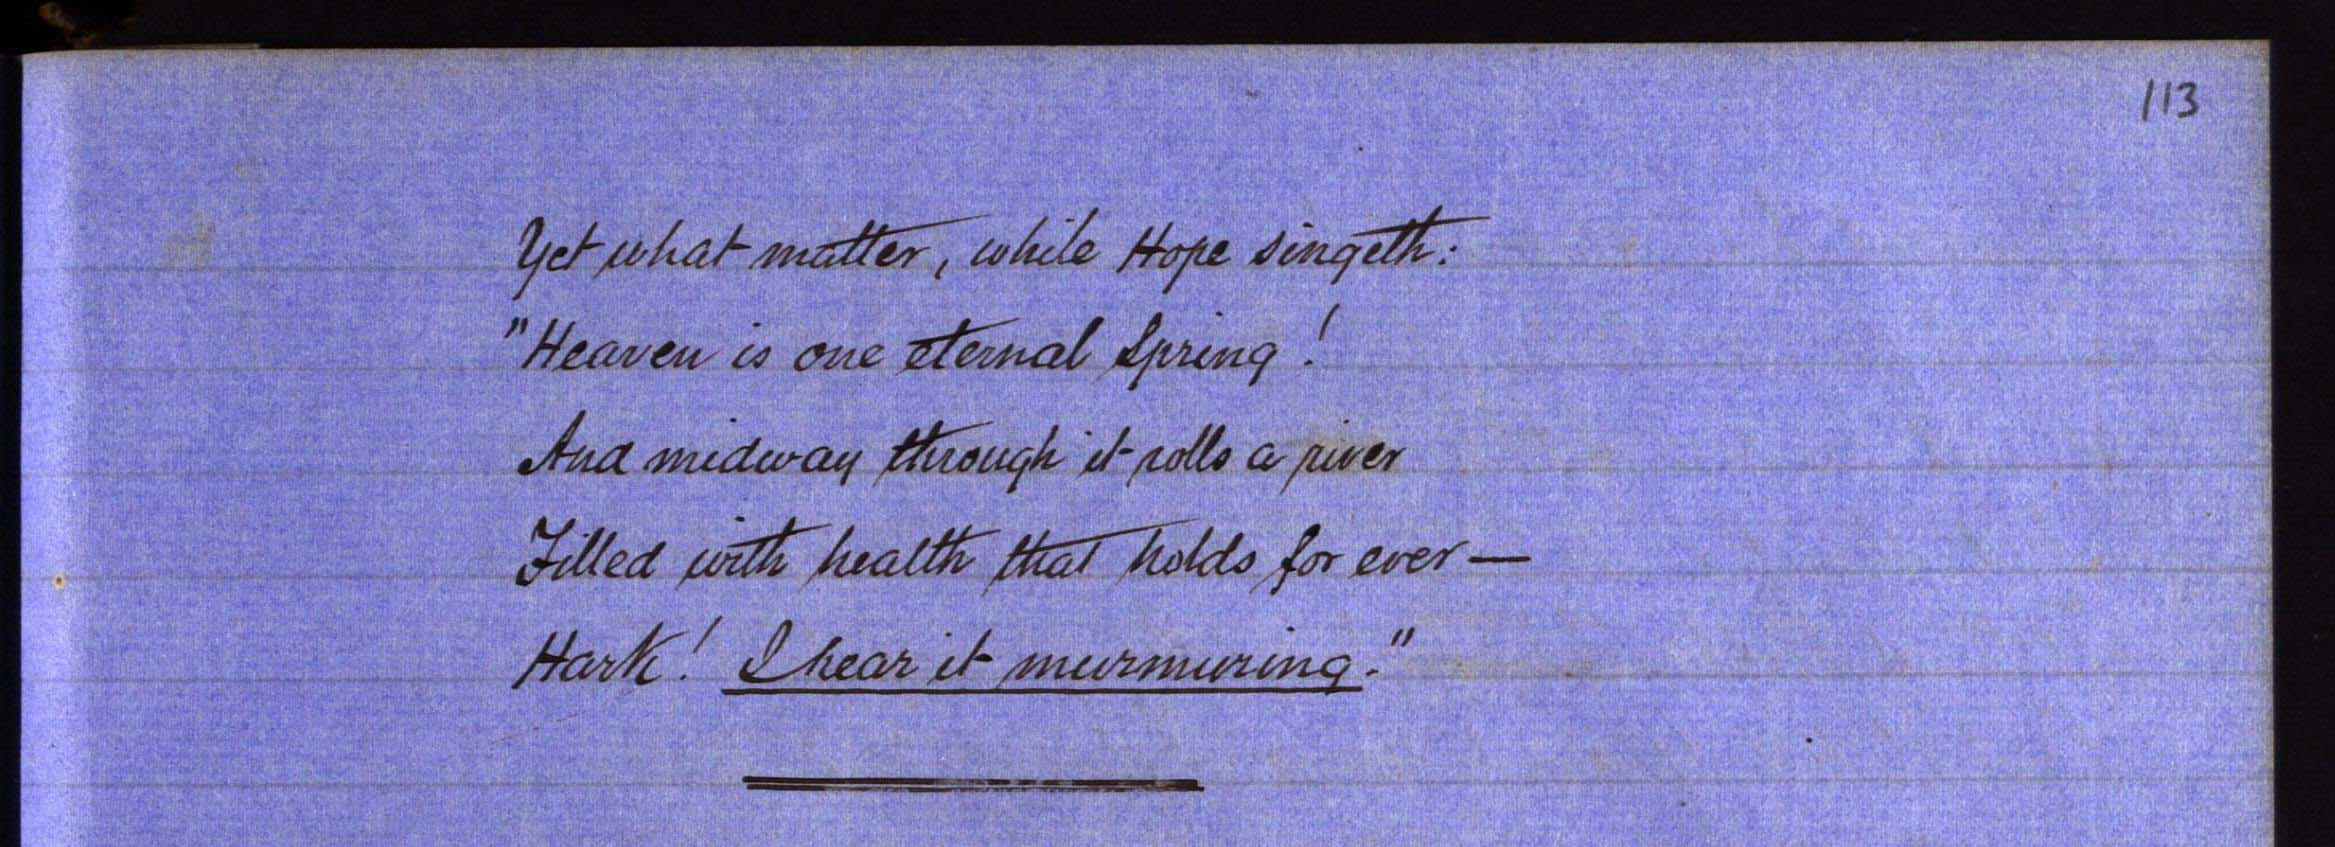 113
Yet what matter, while Hope singeth:
"Heaven is one eternal Spring!
And midway through it rolls a river
Filled with health that holds for ever —
Hark! I hear it murmuring."